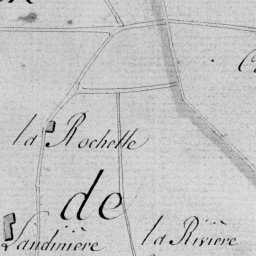 la Rochelle
de
la Rivière
Landinière